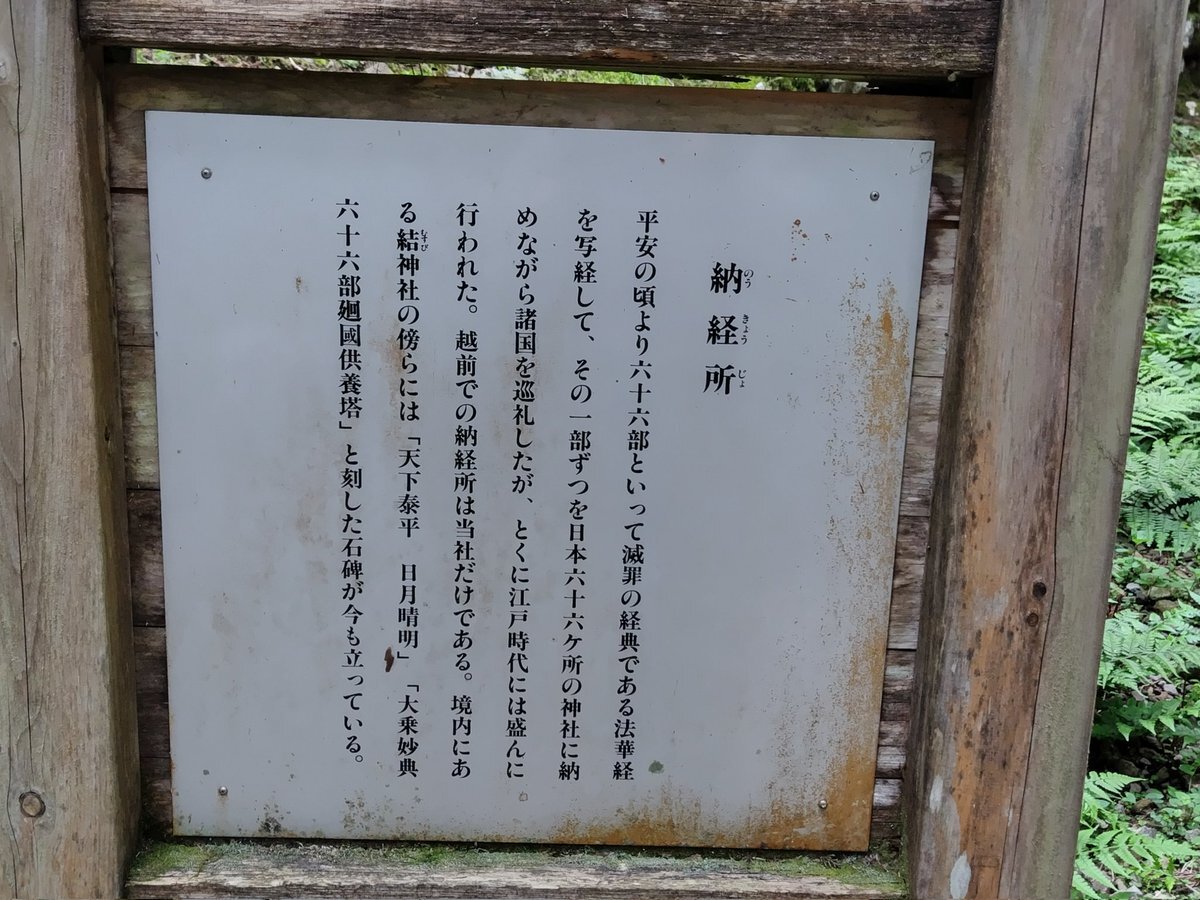 納経所
のうきょうじょ
平安の頃より六十六部といって滅罪の経典である法華経
を写経して、その一部ずつを日本六十六ケ所の神社に納
めながら諸国を巡礼したが、とくに江戸時代には盛んに
行われた。越前での納経所は当社だけである。境内にあ
る結神社の傍らには「天下泰平　日月晴明」「大乗妙典
むすび
六十六部廻國供養塔」と刻した石碑が今も立っている。